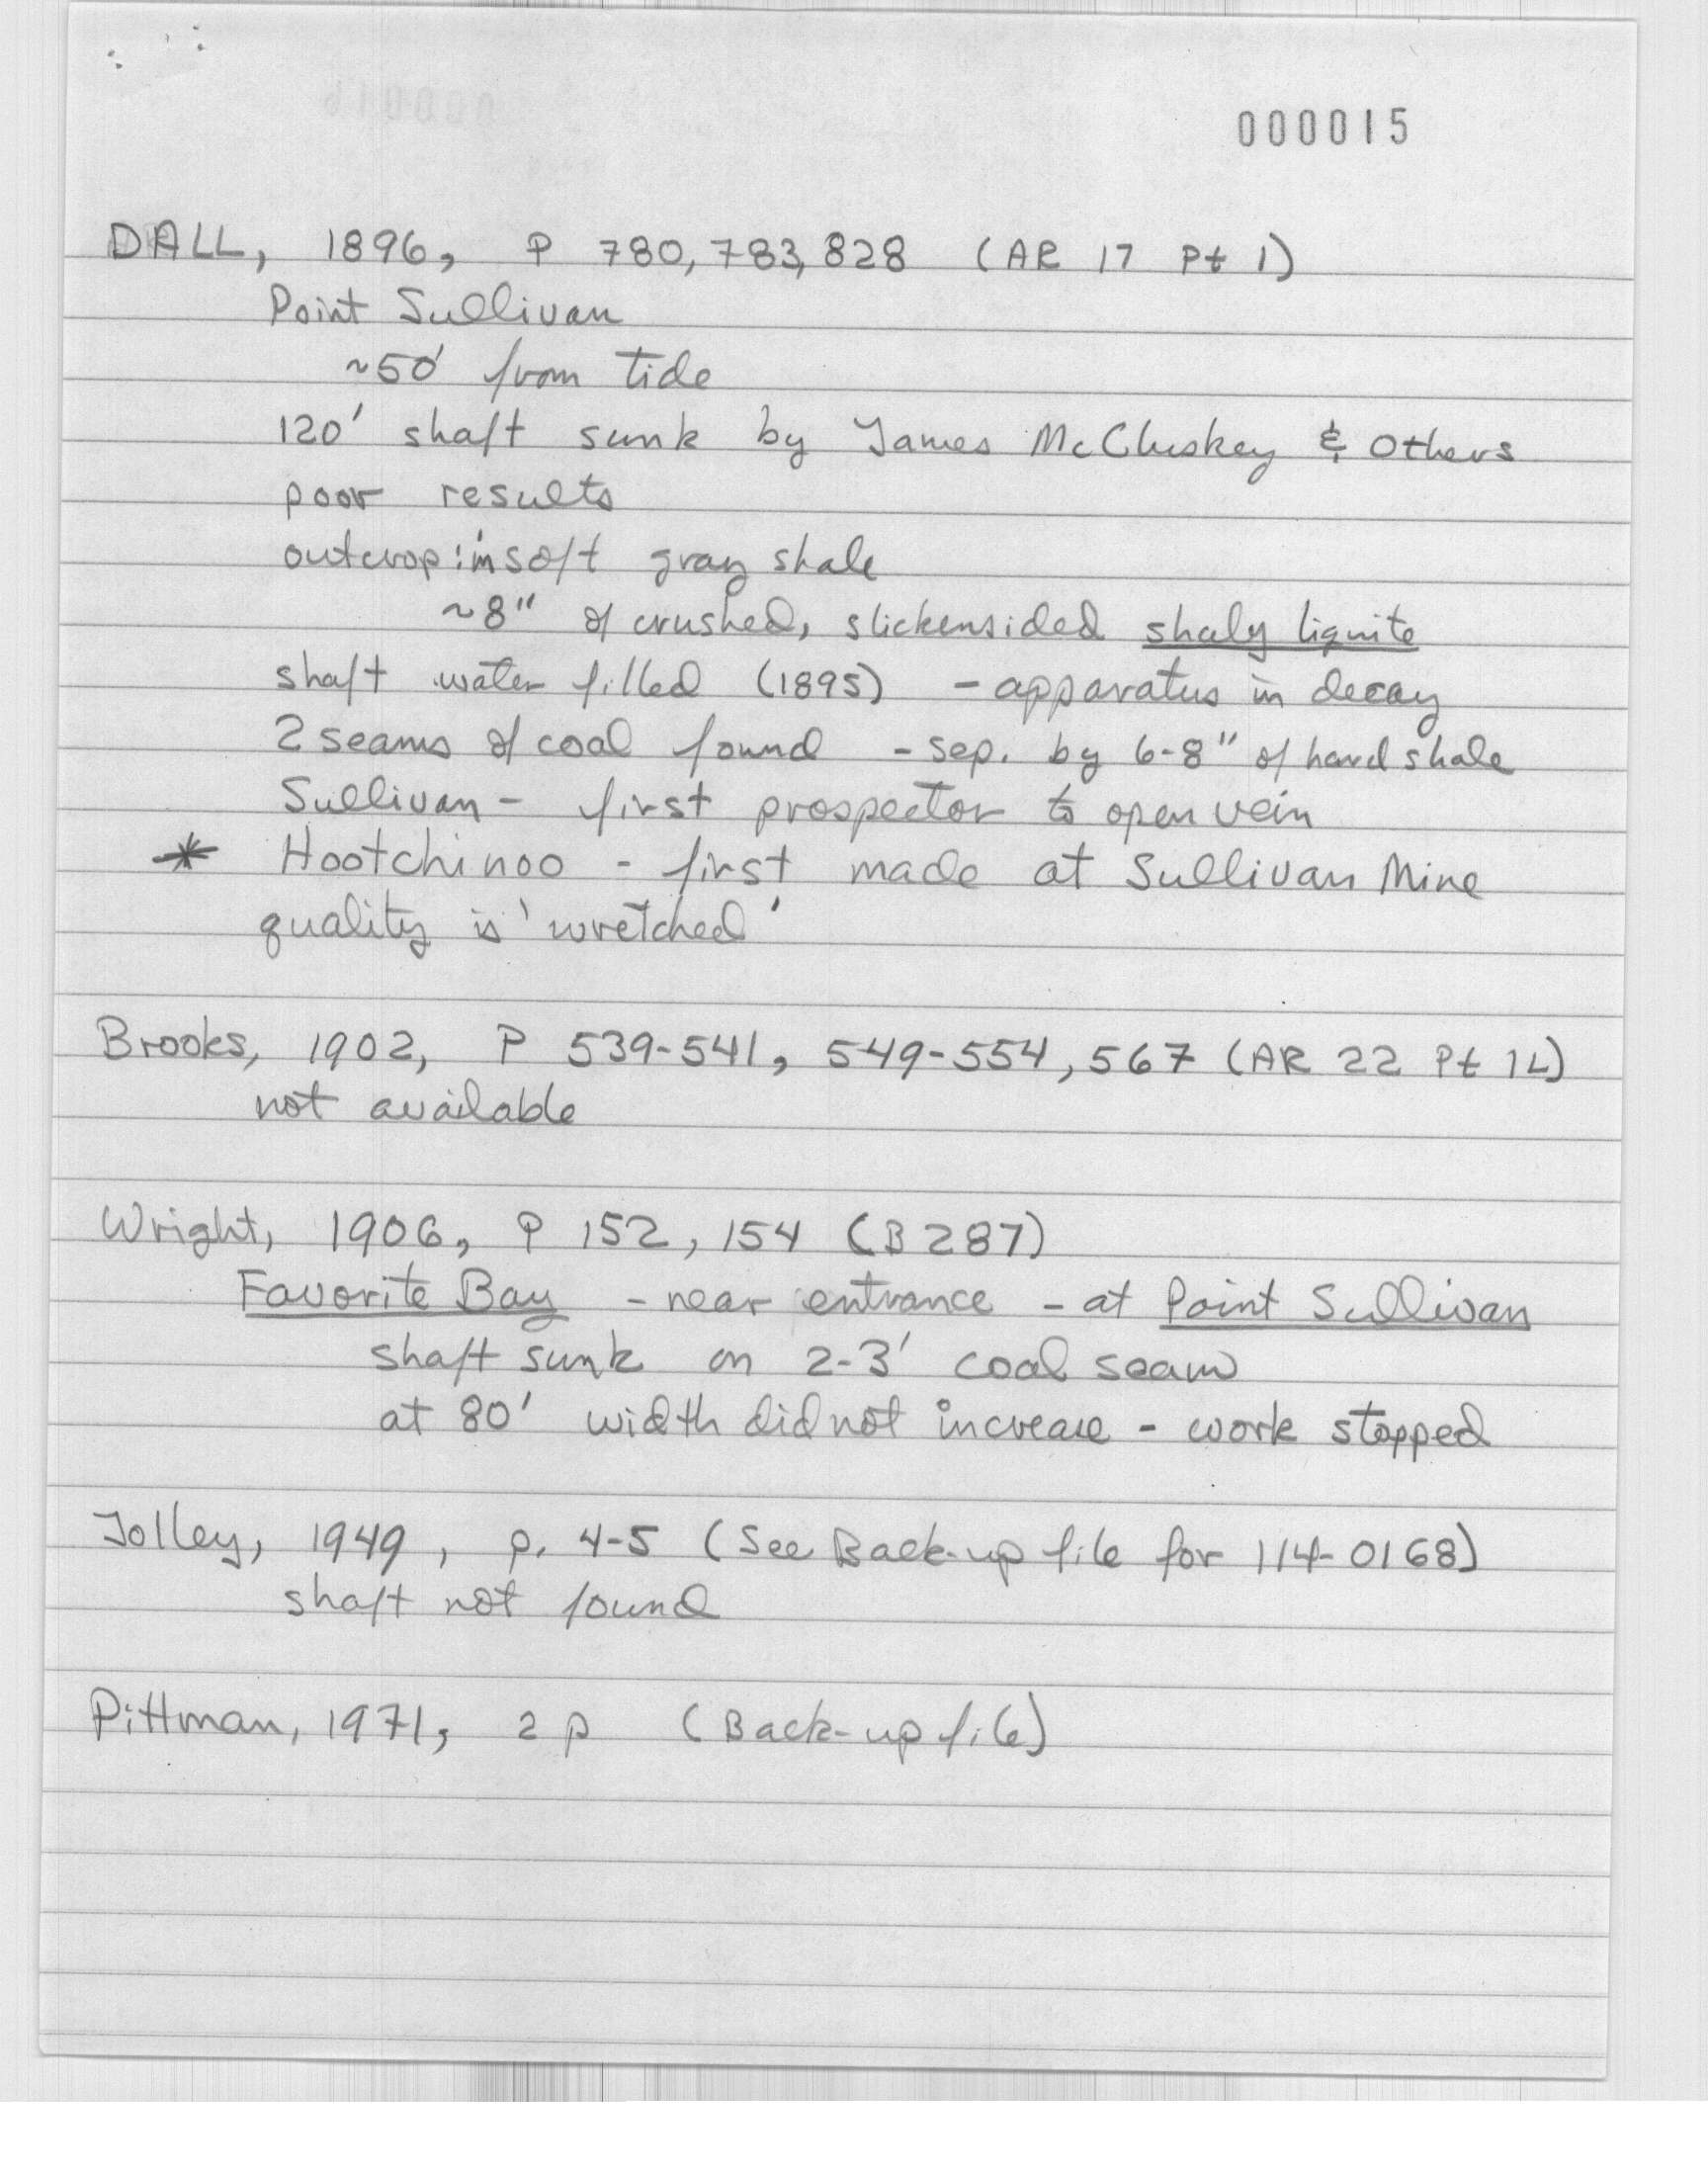 000015
DALL, 1896, P 780, 783, 828 (AR 17 Pt 1)
Point Sullivan
~50' from tide
120' shaft sunk by James McCluskey & Others
poor results
outcrop: in soft gray shale
~8" of crushed, slickensided shaly lignite
shaft water filled (1895) - apparatus in decay
2 seams of coal found - sep. by 6-8" of hard shale
Sullivan - first prospector to open vein
* Hootchinoo - first made at Sullivan Mine
quality is 'wretched'
Brooks, 1902, P 539-541, 549-554, 567 (AR 22 Pt 1L)
not available
Wright, 1906, P 152, 154 (B 287)
Favorite Bay - near entrance - at Point Sullivan
shaft sunk on 2-3' coal seam
at 80' width did not increase - work stopped
Jolley, 1949, p. 4-5 (See Back-up file for 114-0168)
shaft not found
Pittman, 1971, 2 p (Back-up file)